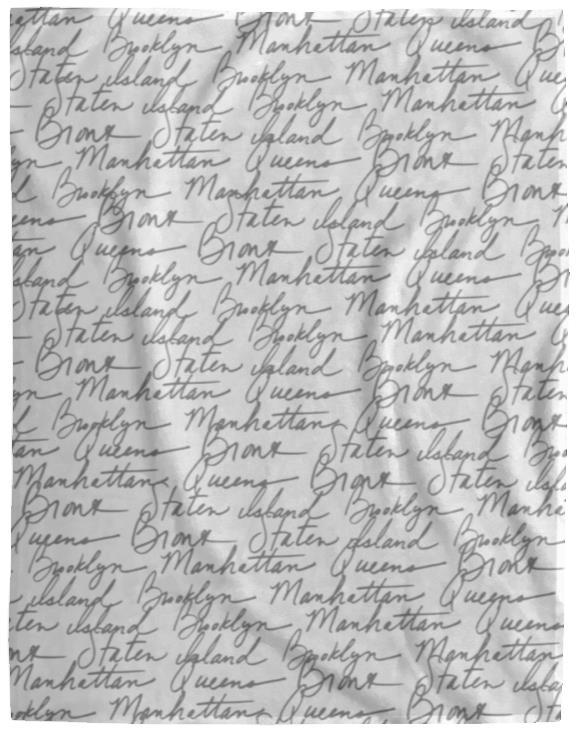 Manhattan Queens Bronx Staten Island
Island Brooklyn Manhattan Queens
Staten Island Brooklyn Manhattan
Staten Island Brooklyn Manhattan
Bronx Staten Island Brooklyn
Manhattan Queens Bronx Staten
Brooklyn Manhattan Queens Bronx
Bronx Staten Island Brooklyn
Queens Bronx Staten Island
Island Brooklyn Manhattan Queens
Staten Island Brooklyn Manhattan
Staten Island Brooklyn Manhattan
Bronx Staten Island Brooklyn
Manhattan Queens Bronx Staten
Brooklyn Manhattan Queens Bronx
Queens Bronx Staten Island
Manhattan Queens Bronx Staten
Bronx Staten Island Brooklyn
Queens Bronx Staten Island Brooklyn
Brooklyn Manhattan Queens Bronx
Island Brooklyn Manhattan Queens
Island Brooklyn Manhattan Queens
Staten Island Brooklyn Manhattan
Manhattan Queens Bronx Staten
Manhattan Queens Bronx